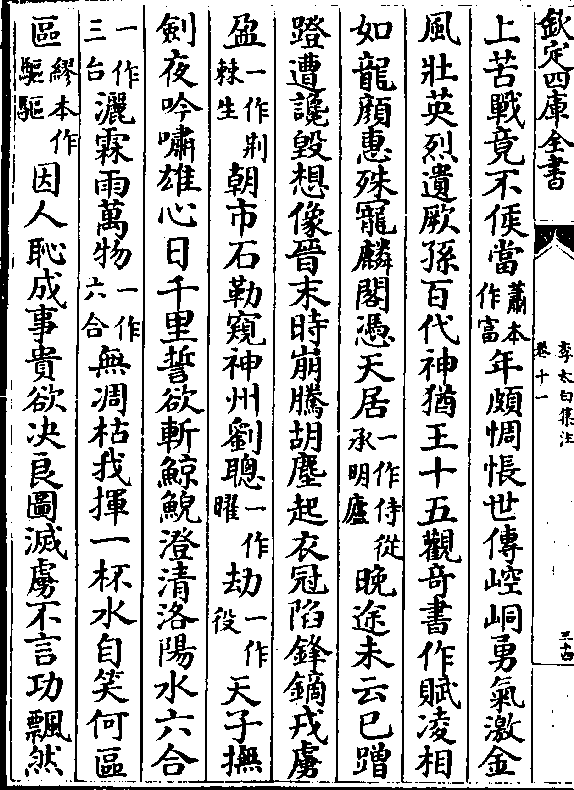 欽定四庫全書
李太白集注
卷十一
三十四
上苦戰竟不侯當蕭本作富年頗惆悵世傳崆峒勇氣激金
風壯英烈遺厥孫百代神猶王十五觀奇書作賦凌相
如龍顔惠殊寵麟閣憑天居一作侍從承明廬晚途未云已蹭
蹬遭讒毀想像晉末時崩騰胡塵起衣冠陷鋒鏑戎虜
盈一作荆棘生朝市石勒窺神州劉聰一作曜劫一作役天子撫
劍夜吟嘯雄心日千里誓欲斬鯨鯢澄清洛陽水六合
一作三台灑霖雨萬物一作六合無凋枯我揮一杯水自笑何區
區繆本作驅驅因人恥成事貴欲决良圖滅虜不言功飄然